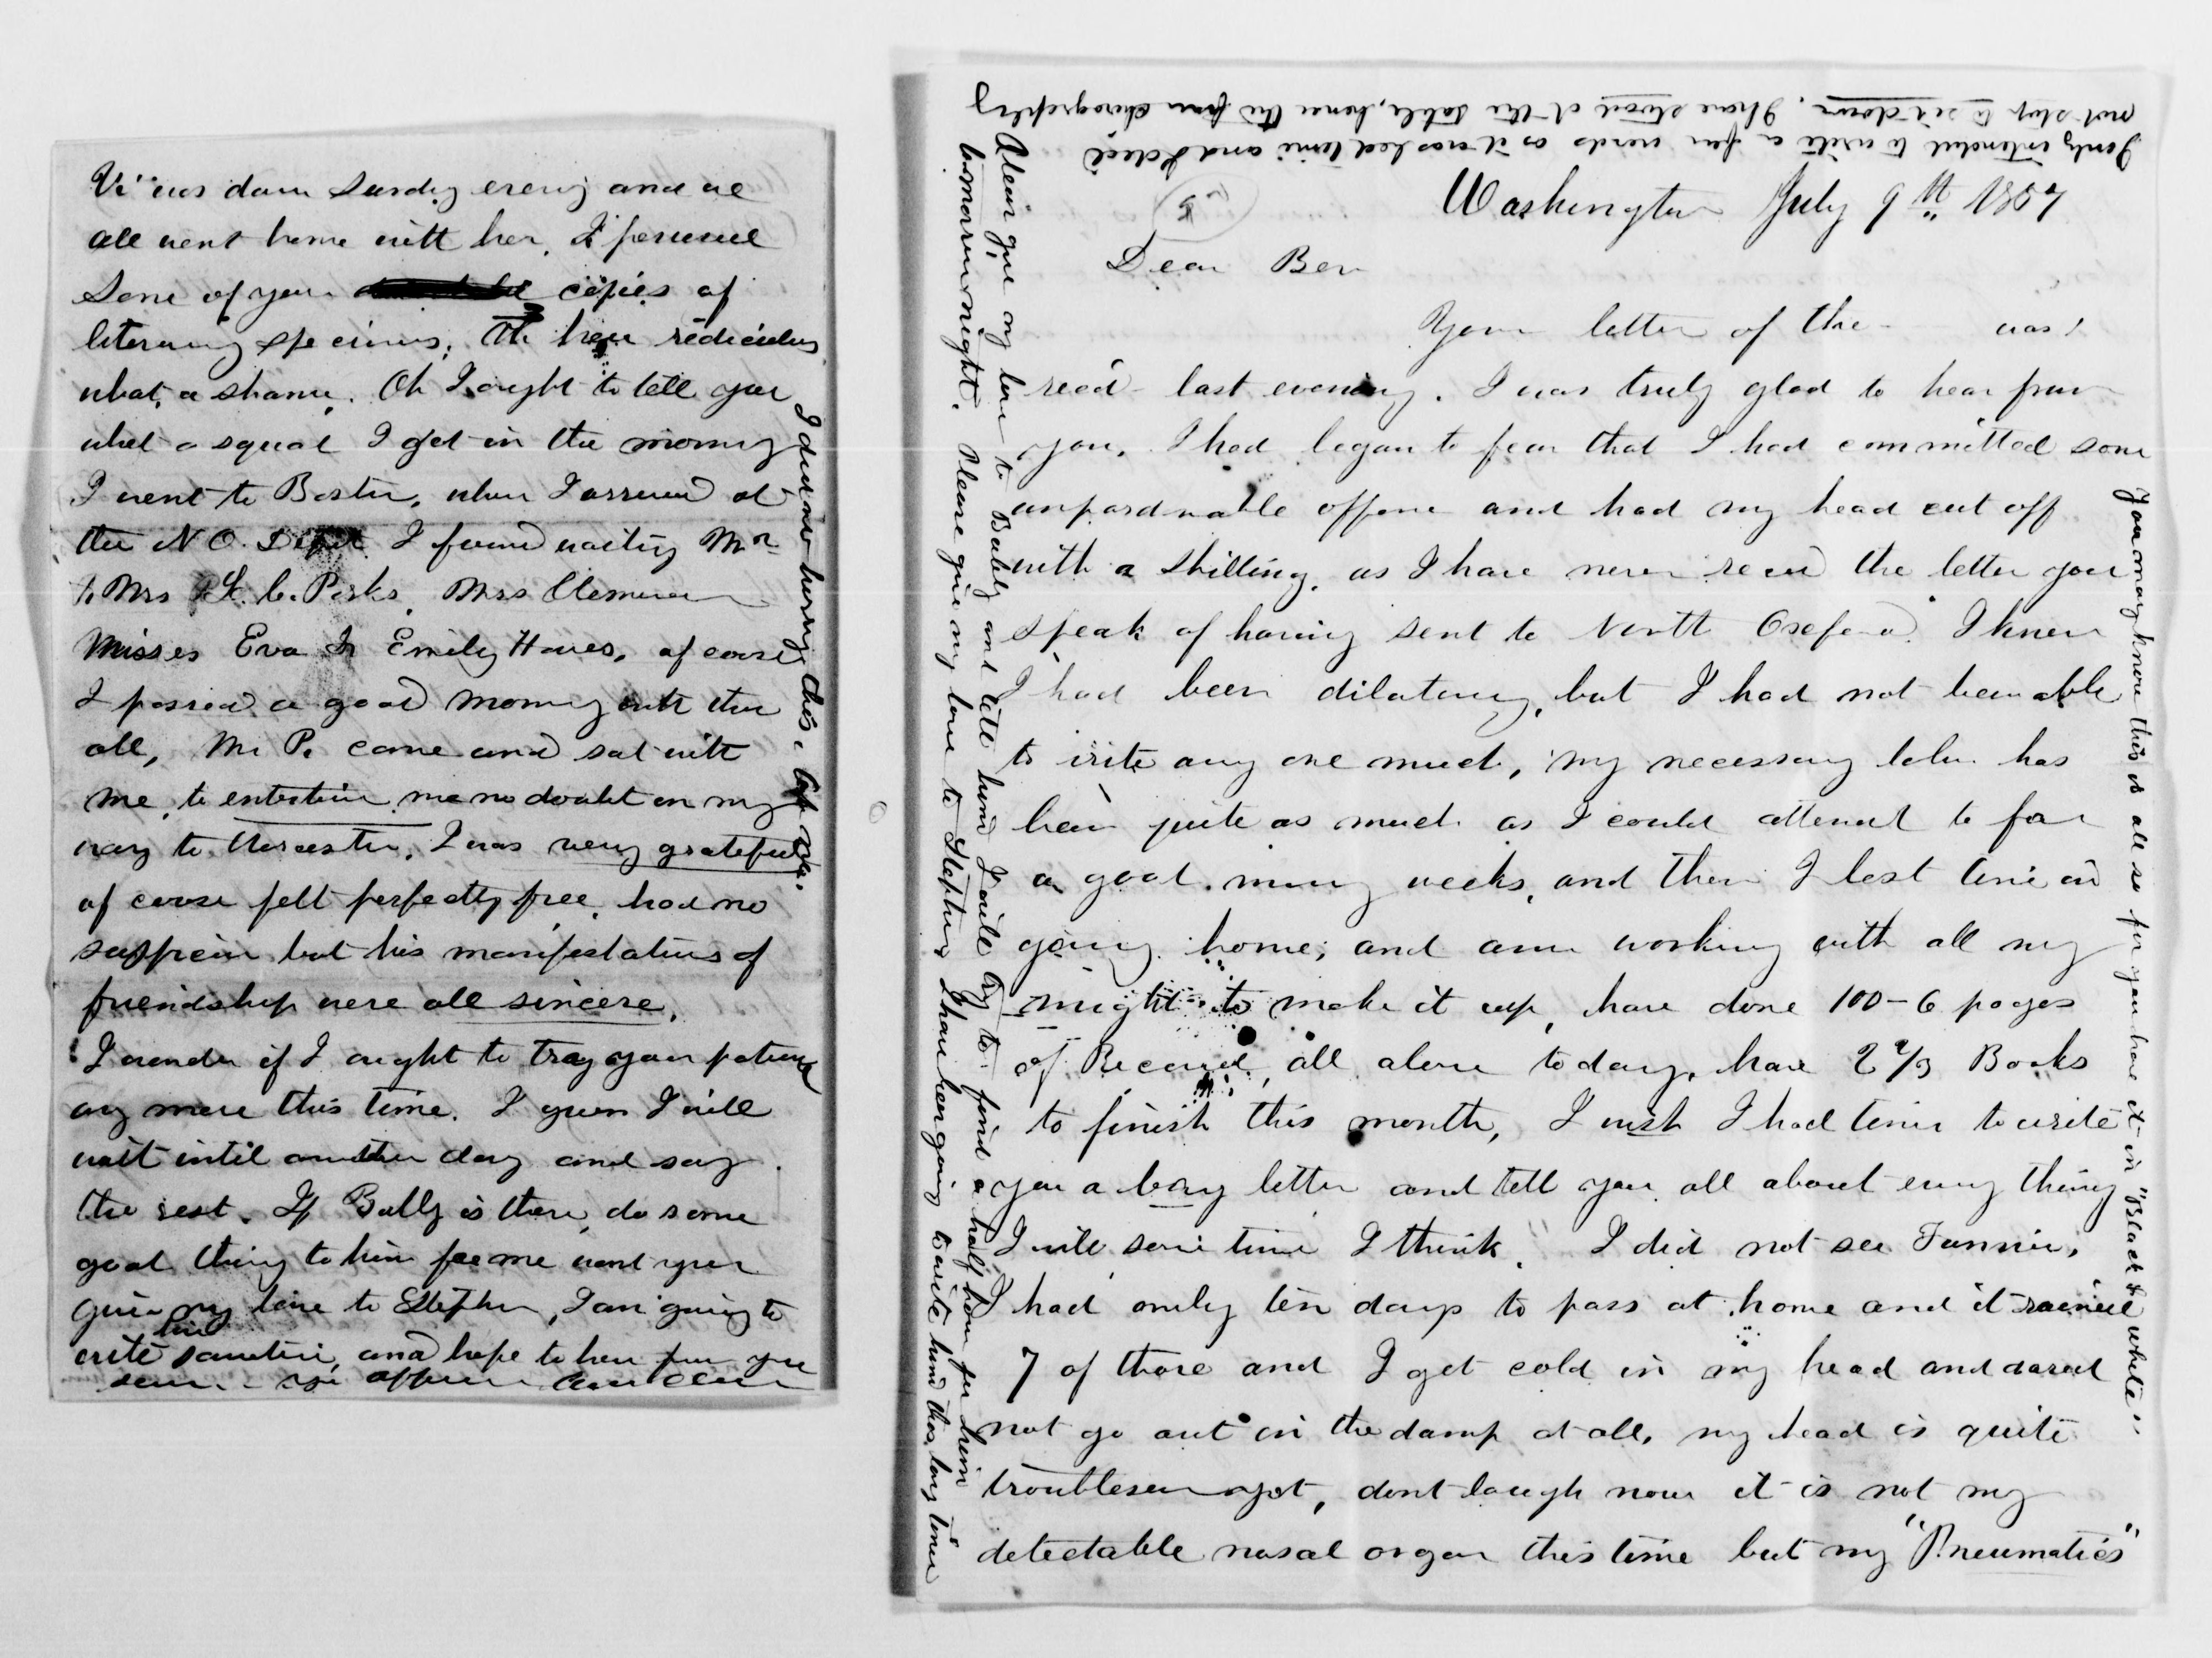 Vi" was down Sunday evening and we
all went home with her, I perused
Some of your copies of
literary specimens, Oh how rediculus
what a shame. Oh I ought to tell you
what a squal I got in the morning
I went to Boston, when I arrived at
the N O. Depot I found waiting Mr
& Mrs L. C. Parks, Mrs
Misses Eva & Emily Hawes, of course
I passed a good morning with them
all, Mr P. came and sat with
me, to entertain me no doubt on my
way to Worcester, I was very grateful
of course felt perfectly free, had no
suspicion but his manifestations of
friendship were all sincere,
I wonder if I ought to tray your patience
any more this time. I guess I will
wait until another day and say
the rest. If Bubby is there, do some
good thing to him for me wont you
give my love to Stephen, I am going to
write him sometime, and hope to hear from you
soon
I did me hurry this,
Washington July 9th 1857
Dear Ben
Your letter of the was
recd last evening. I was truly glad to hear from
you, I had began to fear that I had committed some
unpardonable offence and had my head cut off
with a shilling, as I have never recd the letter you
speak of having sent to North Oxford. I knew
I had been dilatory, but I had not been able
to write any one much, my necessary labor has
been quite as much as I could attend to for
a good many weeks, and then I lost time in
going home, and am working with all my
might to make it up, have done 100-6 pages
of Record, all alone today, have 2 2/3 Books
to finish this month, I wish I had time to write
you a long letter and tell you all about every thing
I will some time I think. I did not see Fannie,
I had only ten days to pass at home and it rained
7 of those and I got cold in my head and dared
not go out in the damp at all, my head is quite
troublesome yet, dont laugh now it is not my
delectable nasal organ this time but my "Pneumatics"
You may know this is all so for you have it in "Black & white"
Please give my love to Stephen I have been going to write him this long time
Again give my love to Bubby and tell him I will try to find a half hour for him
tomorrow night.
I only intended to write a few words as it was bed time and I did
not stop to sit down. I have stood at the table, hence this fine chirography